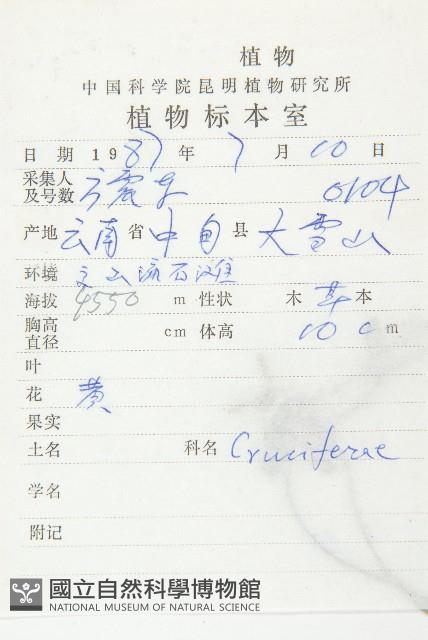 植物
中国科学院昆明植物研究所
植物标本室
日期 1987年 7月 10日
采集人及号数 方震东 0104
产地 云南省中甸县 大雪山
环境 流石滩
海拔 4550 m 性状 木草本
胸高直径 cm 体高 10 cm
叶
花 黄
果实
土名 科名 Cruciferae
学名
附记
國立自然科學博物館
NATIONAL MUSEUM OF NATURAL SCIENCE